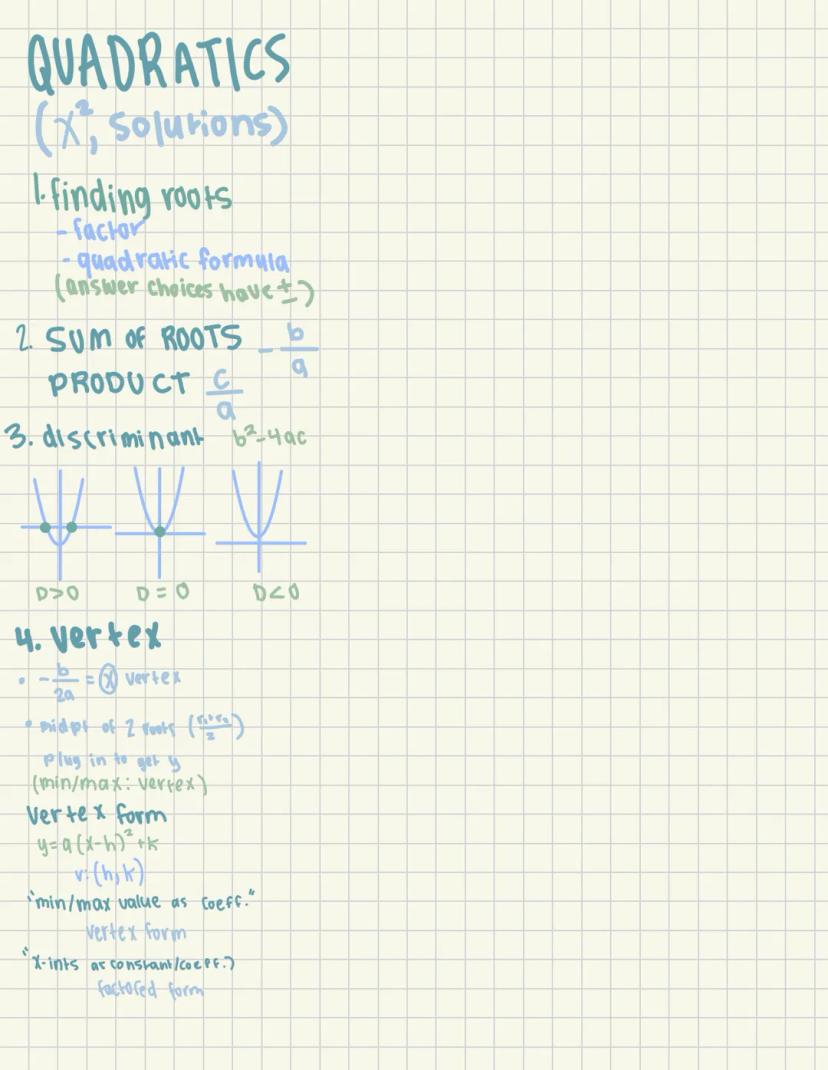 QUADRATICS
(x², solutions)
1. finding roots
- factor
- quadratic formula
(answer choices have ±)
2. SUM OF ROOTS -b/a
PRODUCT c/a
3. discriminant b²-4ac
D>0 D=0 D<0
4. vertex
• -b/2a = x vertex
• midpt of 2 roots (r₁+r₂/2)
plug in to get y
(min/max: vertex)
vertex form
y=a(x-h)²+k
v:(h,k)
"min/max value as coeff."
vertex form
"x-ints as constant/coeff.)
factored form